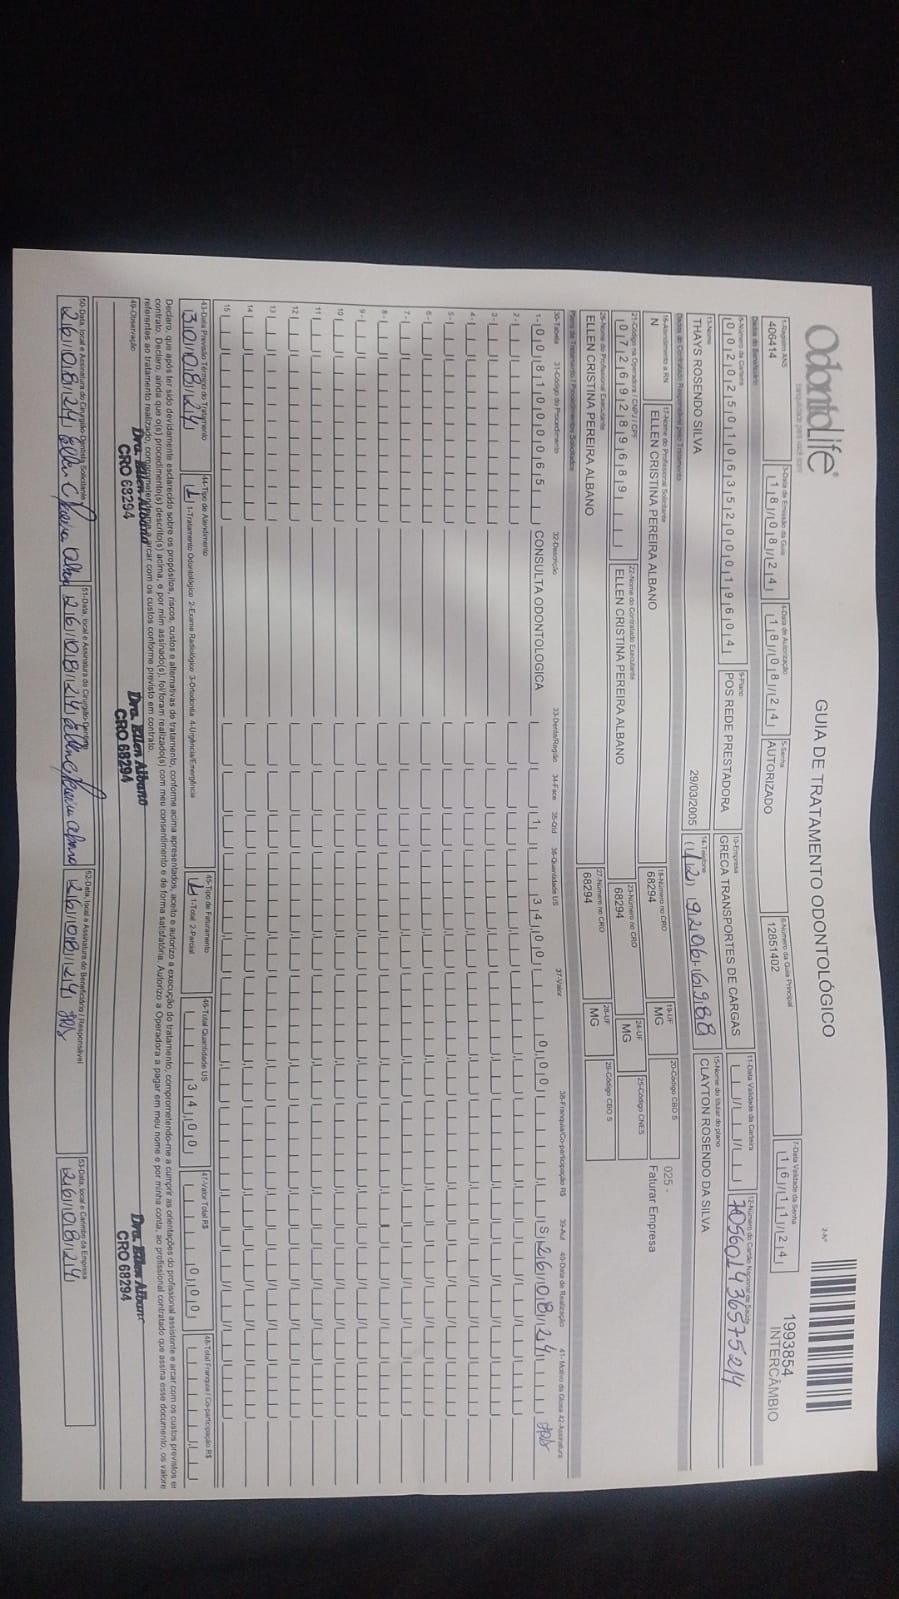 OdontoLife®
GUIA DE TRATAMENTO ODONTOLÓGICO
2-Nº
1993854
INTERCÂMBIO
1-Registro ANS
406414
3-Data de Emissão da Guia
18/08/24
4-Data de Autorização
18/08/24
5-Senha
AUTORIZADO
6-Número da Guia Principal
12851402
7-Data Validade da Senha
16/11/24
Dados do Beneficiário
8-Número da Carteira
002025010635200019604
9-Plano
POS REDE PRESTADORA
10-Empresa
GRECA TRANSPORTES DE CARGAS
11-Data Validade da Carteira
12-Número do Cartão Nacional de Saúde
705601436575214
13-Nome
THAYS ROSENDO SILVA
29/03/2005
14-Telefone
15-Nome do titular do plano
CLAYTON ROSENDO DA SILVA
Dados do Contratado Responsável pelo Tratamento
16-Atendimento a RN
N
17-Nome do Profissional Solicitante
ELLEN CRISTINA PEREIRA ALBANO
18-Número no CRO
68294
19-UF
MG
20-Código CBO S
025 -
Faturar Empresa
21-Código na Operadora / CNPJ / CPF
07269289689
22-Nome do Contratado Executante
ELLEN CRISTINA PEREIRA ALBANO
23-Número no CRO
68294
24-UF
MG
25-Código CNES
26-Nome do Profissional Executante
ELLEN CRISTINA PEREIRA ALBANO
27-Número no CRO
68294
28-UF
MG
29-Código CBO S
Plano de Tratamento / Procedimentos Solicitados
30-Tabela 31-Código do Procedimento 32-Descrição 33-Dente/Região 34-Face 35-Qtd 36-Quantidade US 37-Valor 38-Franquia/Co-participação R$ 39-Aut 40-Data de Realização 41-Motivo da Glosa 42-Assinatura
1- 00 81000065 CONSULTA ODONTOLOGICA 1 34,00 0,00 S 26/08/24
2-
3-
4-
5-
6-
7-
8-
9-
10
11
12
13
14
15
43-Data Previsão Término do Tratamento
30/08/24
44-Tipo de Atendimento
1 1-Tratamento Odontológico 2-Exame Radiológico 3-Ortodontia 4-Urgência/Emergência
45-Tipo de Faturamento
1-Total 2-Parcial
46-Total Quantidade US
34,00
47-Valor Total R$
0,00
48-Total Franquia / Co-participação R$
Declaro, que após ter sido devidamente esclarecido sobre os propósitos, riscos, custos e alternativas de tratamento, conforme acima apresentados, aceito e autorizo a execução do tratamento, comprometendo-me a cumprir as orientações do profissional assistente e arcar com os custos previstos em
contrato. Declaro, ainda que o(s) procedimento(s) descrito(s) acima, e por mim assinado(s), foi/foram realizado(s) com meu consentimento e de forma satisfatória. Autorizo a Operadora a pagar em meu nome e por minha conta, ao profissional contratado que assina esse documento, os valores
referentes ao tratamento realizado, comprometendo-me a arcar com os custos conforme previsto em contrato.
49-Observação
Dra. Ellen Albano
CRO 68294
Dra. Ellen Albano
CRO 68294
Dra. Ellen Albano
CRO 68294
50-Data, local e Assinatura do Cirurgião-Dentista Solicitante
26/08/24
51-Data, local e Assinatura do Cirurgião-Dentista
26/08/24
52-Data, local e Assinatura do Beneficiário / Responsável
26/08/24
53-Data, local e Carimbo da Empresa
26/08/24